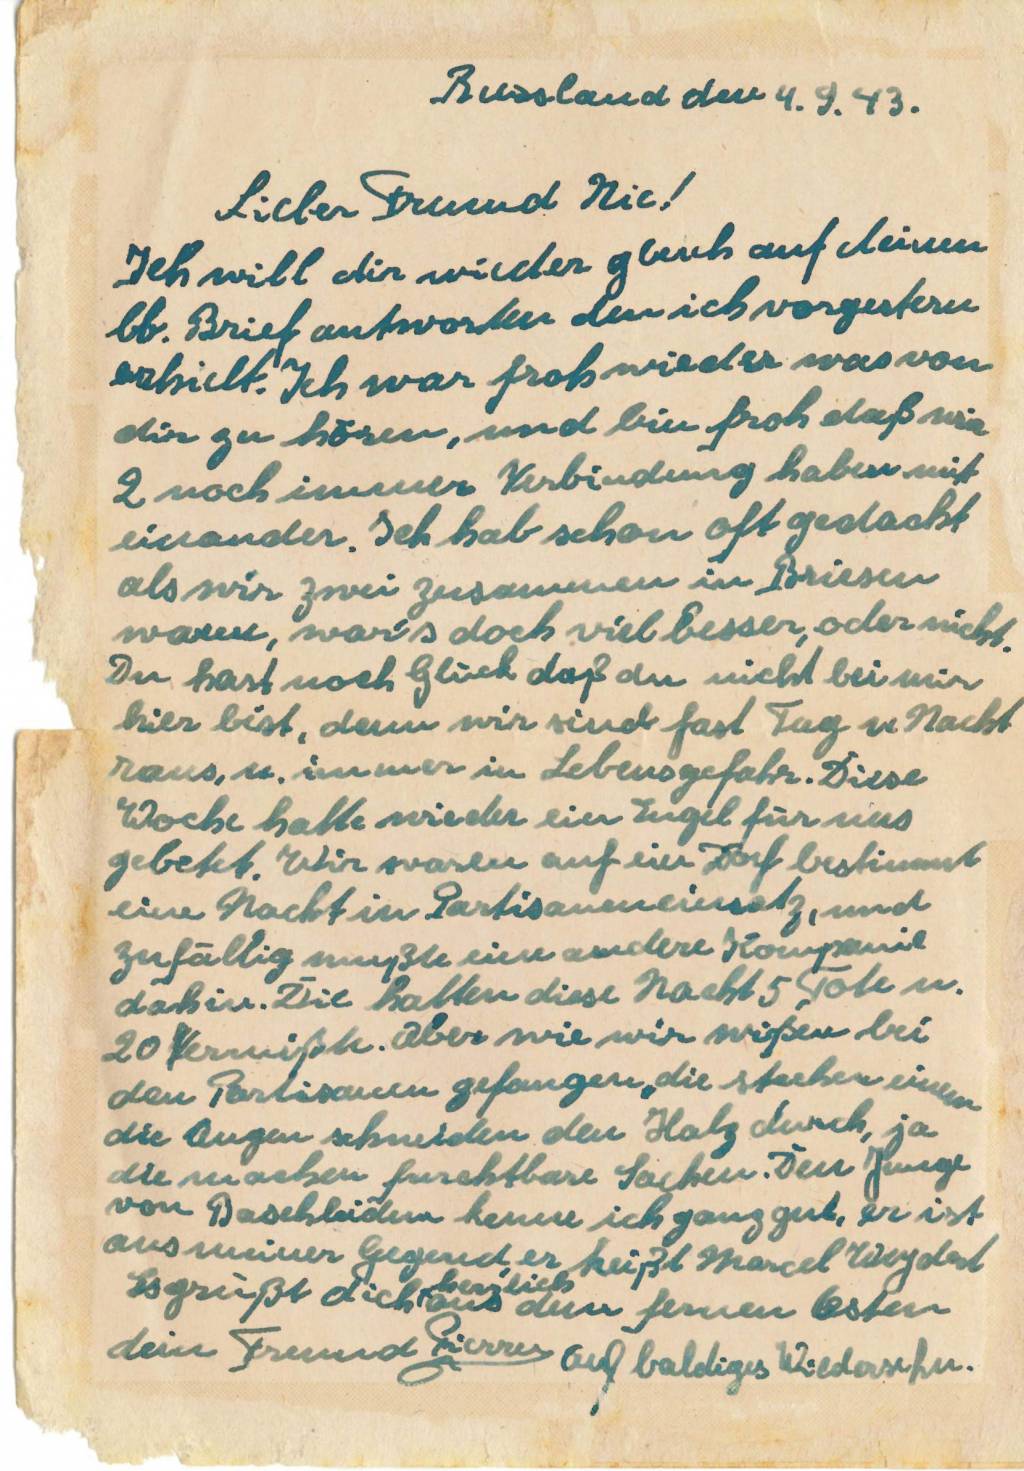 Russland den 4.9.43.
Lieber Freund Nic!
Ich will dir wieder gleich auf deinen
lb. Brief antworten den ich vorgestern
erhielt. Ich war froh wieder was von
dir zu hören, und bin froh daß wir
2 noch immer Verbindung haben mit
einander. Ich hab schon oft gedacht
als wir zwei zusammen in Briesen
waren, war's doch viel besser, oder nicht.
Du hast noch Glück daß du nicht bei mir
hier bist, denn wir sind fast Tag u Nacht
raus, u. immer in Lebensgefahr. Diese
Woche hatte wieder ein Engel für uns
gebetet. Wir waren auf ein Dorf bestimmt
eine Nacht in Partisaneneinsatz, und
zufällig mußte eine andere Kompanie
dahin. Die hatten diese Nacht 5 Tote u.
20 Vermißte. Aber wie wir wißen bei
den Partisanen gefangen, die stechen einem
die Augen schneiden den Halz durch, ja
die machen furchtbare Sachen. Den Junge
von Baschleiden kenne ich ganz gut, er ist
aus meiner Gegend, er heißt Marcel
Es grüßt dich herzlich aus dem fernen Osten
dein Freund Pierre Auf baldiges Wiedersehn.